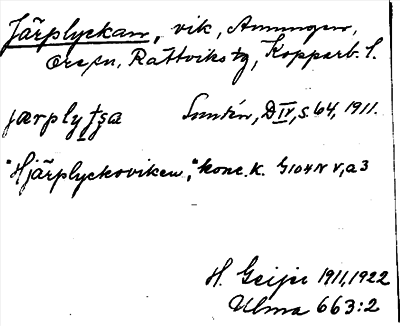 Järplyckan, vik, Amungen,
Ore sn, Rättviks tg, Kopparb. l.
jærplytʃa Sundén, DIV, s. 64, 1911.
"Hjärplyckoviken", konc. k. G104N V, a 3
H. Geijer 1911, 1922
Ulma 663:2